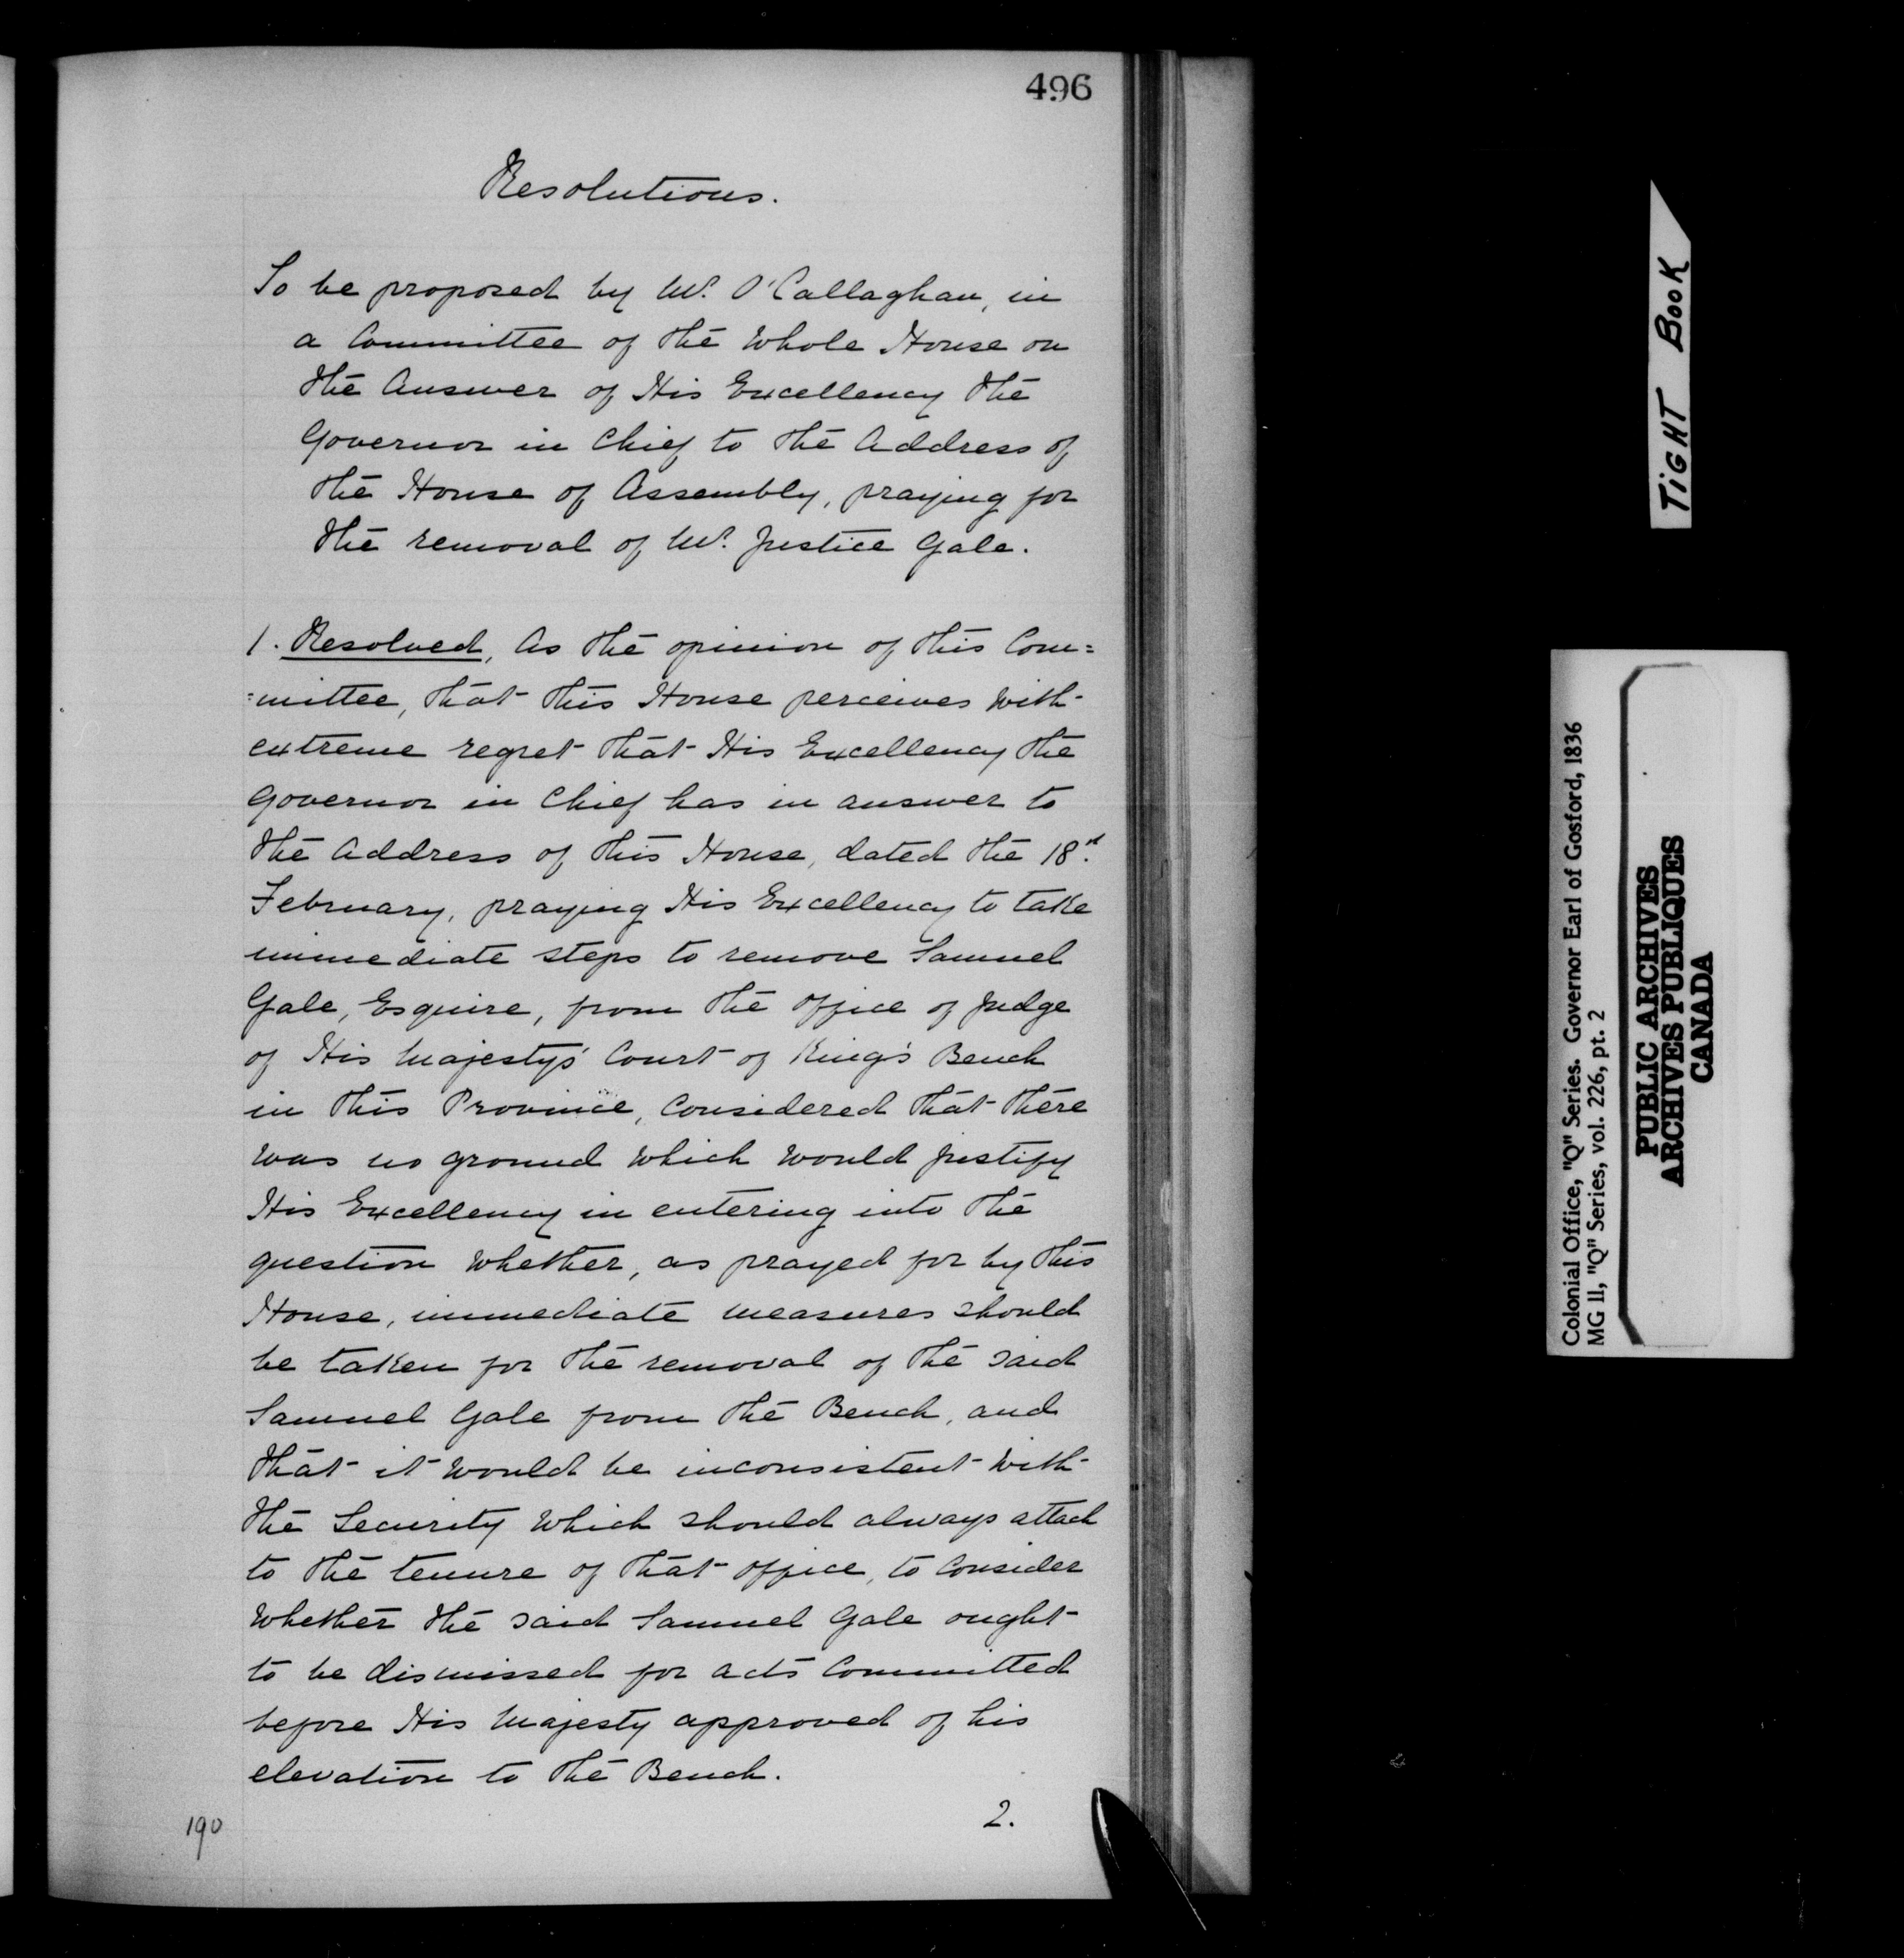 496
Resolutions.
To be proposed by Mr. O'Callaghan, in
a Committee of the Whole House on
the Answer of His Excellency the
Governor in Chief to the Address of
the House of Assembly, praying for
the removal of Mr. Justice Gale.
1. Resolved, As the opinion of this Com=
=mittee, that this House perceives with
extreme regret that His Excellency the
Governor in Chief has in answer to
the Address of this House, dated the 18th.
February, praying His Excellency to take
immediate steps to remove Samuel
Gale, Esquire, from the office of Judge
of His Majesty's Court of King's Bench
in this Province, Considered that there
was no ground which would justify
His Excellency in entering into the
question whether, as prayed for by this
House, immediate measures should
be taken for the removal of the said
Samuel Gale from the Bench, and
that it would be inconsistent with
the Security which should always attach
to the tenure of that office, to Consider
whether the said Samuel Gale ought
to be dismissed for acts Committed
before His Majesty approved of his
elevation to the Bench.
2.
190
TIGHT BOOK
Colonial Office, "Q" Series. Governor Earl of Gosford, 1836
MG 11, "Q" Series, vol. 226, pt. 2
PUBLIC ARCHIVES
ARCHIVES PUBLIQUES
CANADA